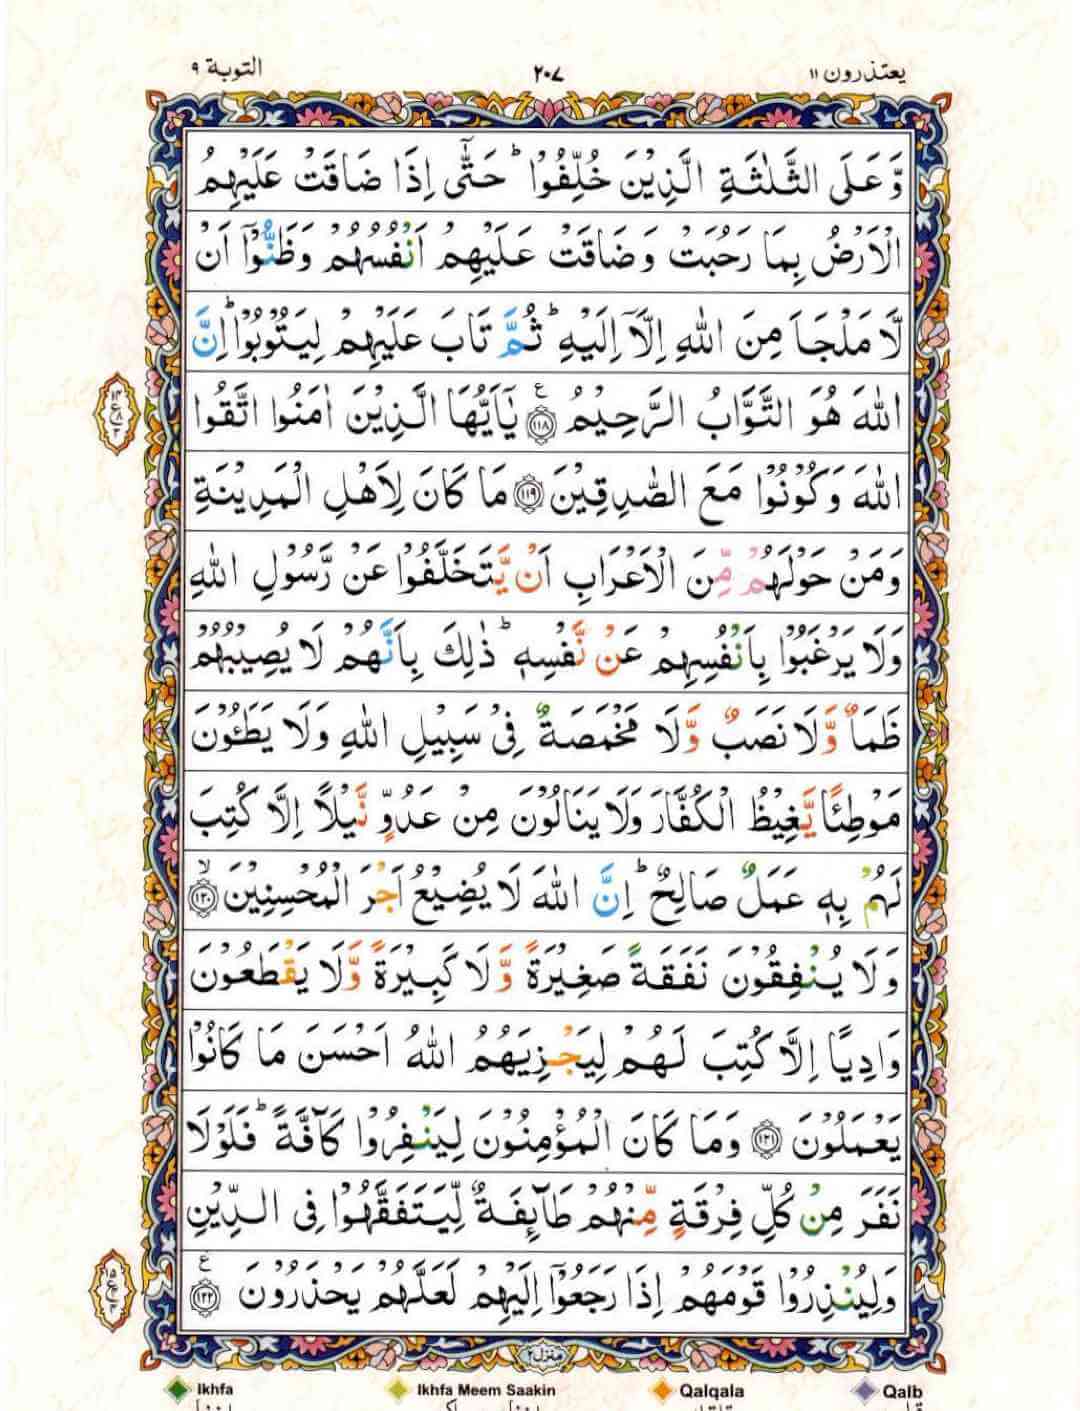 يعتذرون ١١ ٢٠٧ التوبة ٩
وَّعَلَى الثَّلٰثَةِ الَّذِيْنَ خُلِّفُوْا ؕ حَتّٰۤى اِذَا ضَاقَتْ عَلَيْهِمُ
الْاَرْضُ بِمَا رَحُبَتْ وَضَاقَتْ عَلَيْهِمْ اَنْفُسُهُمْ وَظَنُّوْۤا اَنْ
لَّا مَلْجَاَ مِنَ اللّٰهِ اِلَّاۤ اِلَيْهِ ؕ ثُمَّ تَابَ عَلَيْهِمْ لِيَتُوْبُوْا ؕ اِنَّ
اللّٰهَ هُوَ التَّوَّابُ الرَّحِيْمُ ۝١١٨ ع يٰۤاَيُّهَا الَّذِيْنَ اٰمَنُوا اتَّقُوا
اللّٰهَ وَكُوْنُوْا مَعَ الصّٰدِقِيْنَ ۝١١٩ مَا كَانَ لِاَهْلِ الْمَدِيْنَةِ
وَمَنْ حَوْلَهُمْ مِّنَ الْاَعْرَابِ اَنْ يَّتَخَلَّفُوْا عَنْ رَّسُوْلِ اللّٰهِ
وَلَا يَرْغَبُوْا بِاَنْفُسِهِمْ عَنْ نَّفْسِهٖ ؕ ذٰلِكَ بِاَنَّهُمْ لَا يُصِيْبُهُمْ
ظَمَاٌ وَّلَا نَصَبٌ وَّلَا مَخْمَصَةٌ فِيْ سَبِيْلِ اللّٰهِ وَلَا يَطَـُٔوْنَ
مَوْطِئًا يَّغِيْظُ الْكُفَّارَ وَلَا يَنَالُوْنَ مِنْ عَدُوٍّ نَّيْلًا اِلَّا كُتِبَ
لَهُمْ بِهٖ عَمَلٌ صَالِحٌ ؕ اِنَّ اللّٰهَ لَا يُضِيْعُ اَجْرَ الْمُحْسِنِيْنَ ۝١٢٠ ۙ
وَلَا يُنْفِقُوْنَ نَفَقَةً صَغِيْرَةً وَّلَا كَبِيْرَةً وَّلَا يَقْطَعُوْنَ
وَادِيًا اِلَّا كُتِبَ لَهُمْ لِيَجْزِيَهُمُ اللّٰهُ اَحْسَنَ مَا كَانُوْا
يَعْمَلُوْنَ ۝١٢١ وَمَا كَانَ الْمُؤْمِنُوْنَ لِيَنْفِرُوْا كَآفَّةً ؕ فَلَوْلَا
نَفَرَ مِنْ كُلِّ فِرْقَةٍ مِّنْهُمْ طَآئِفَةٌ لِّيَتَفَقَّهُوْا فِى الدِّيْنِ
وَلِيُنْذِرُوْا قَوْمَهُمْ اِذَا رَجَعُوْۤا اِلَيْهِمْ لَعَلَّهُمْ يَحْذَرُوْنَ ۝١٢٢ ع
منزل ٢
Ikhfa Ikhfa Meem Saakin Qalqala Qalb